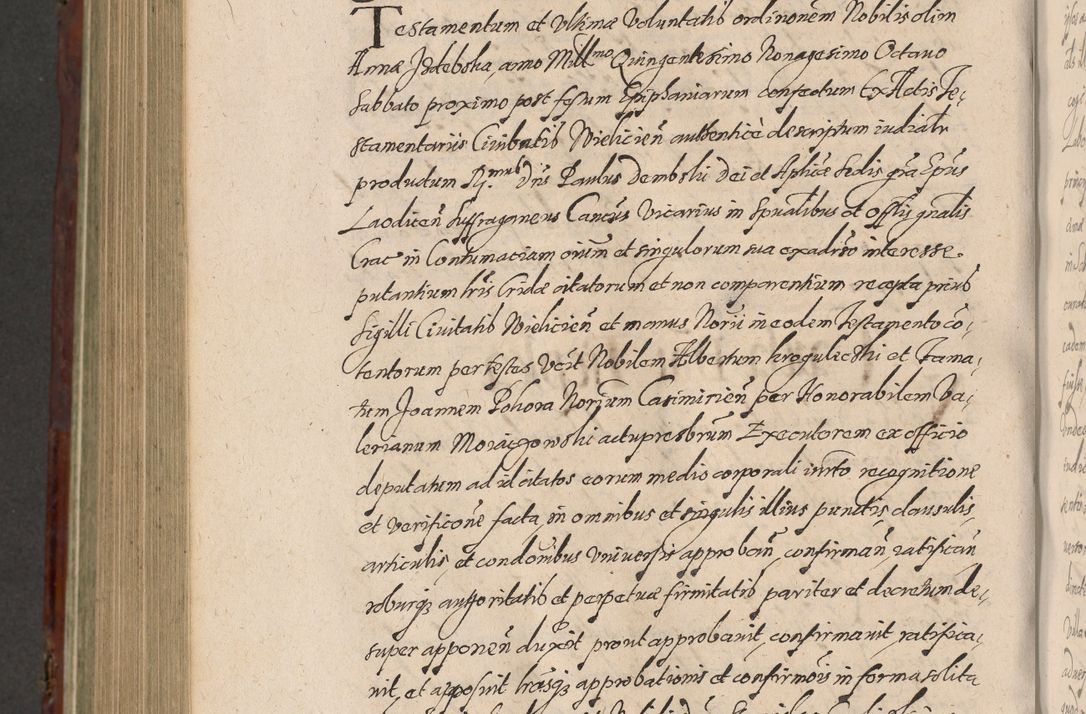 Testamentum et vltimæ voluntatis ordinonem Nobilis olim
Annæ Izdebska, anno Millmo Quingentesimo Nonagesimo Octauo
Sabbato proximo post festum Epiphaniarum confectum Ex Actis Te-
stamentariis Ciuitatis Wieliciен̃ authenticè descriptum iudialr
productum Rmus Dns Paulus Dembski Dei et Aplicæ Sedis gra Epus
Laodiceñ Suffraganeus Cancus Vicarius in Spualibus et Offlis gnalis
Crac in Contumaciam oium et singulorum sua exadiso interesse
putantium lris Cridæ citatorum et non comparentium recepta prius
Sigilli Ciuitatis Wielicieñ et manus Norii in eodem Testamento co-
tentorum per testes vczt Nobilem Albertum Kregulecski et Fama-
tum Joannem Pohora Norium Casimirieñ per Honorabilem Va-
lerianum actu presbrum Executorem ex officio
deputatum ad id citatos eorum medio corporali iurto recognitione
et verificone facta, in omnibus et singulis illius punctis clausulis,
articulis, et condonibus vniuersis approbañ, confirmañ, ratificañ
roburqz authoritatis et perpetuæ firmitatis pariter et decretum de-
super apponeñ duxit prout approbauit, confirmauit, ratifica-
uit, et apposuit hrasqz approbationis et confirmois in forma solita